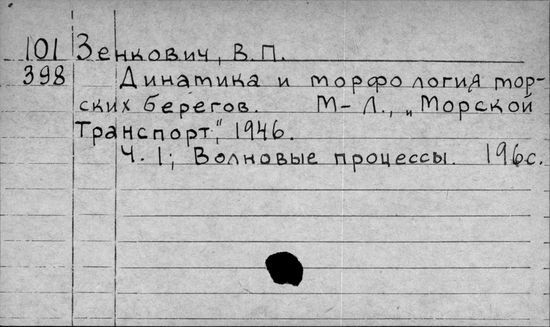 101 Зенкович, В.П.
398 Динатика и торфология тор-
ских берегов. М-Л., „Морской
Транспорт," 1946.
Ч. 1; Волновые процессы. 196с.